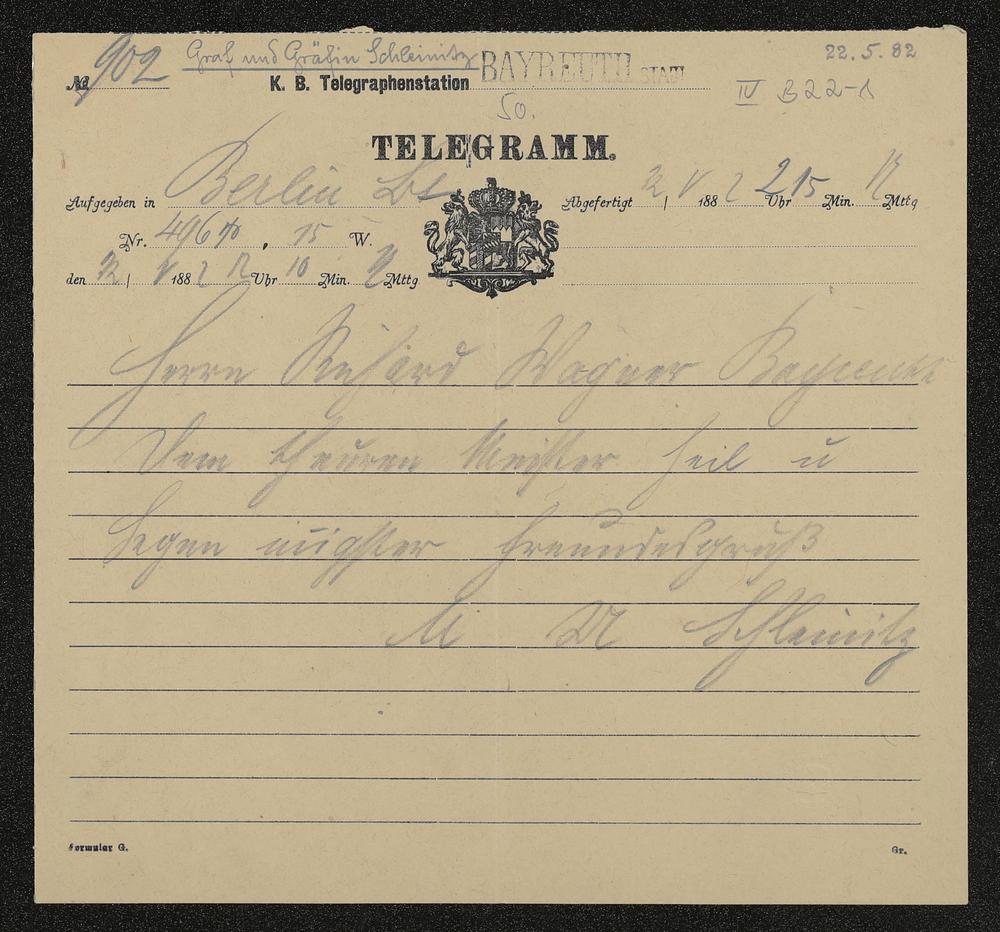 № 902 Graf und Gräfin Schleinitz 22.5.82
K. B. Telegraphenstation BAYREUTH STADT IV B 22-1
50.
TELEGRAMM.
Aufgegeben in Berlin Abgefertigt 22 / V 1882 2 Uhr 15 Min. Mttg
Nr. 496 , 15 W.
den 22 / V 1882 12 Uhr 10 Min. Mttg
Herrn Richard Wagner Bayreuth
Dem theuren Meister Heil u
Segen innigster Freundesgruß
M Schleinitz
Formular G. Gr.